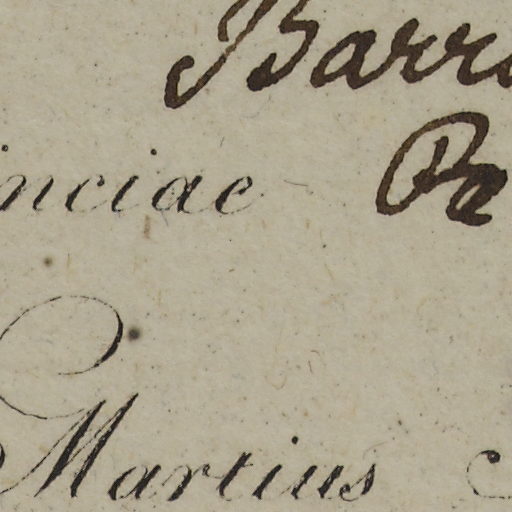 Barr
inciae
Martius